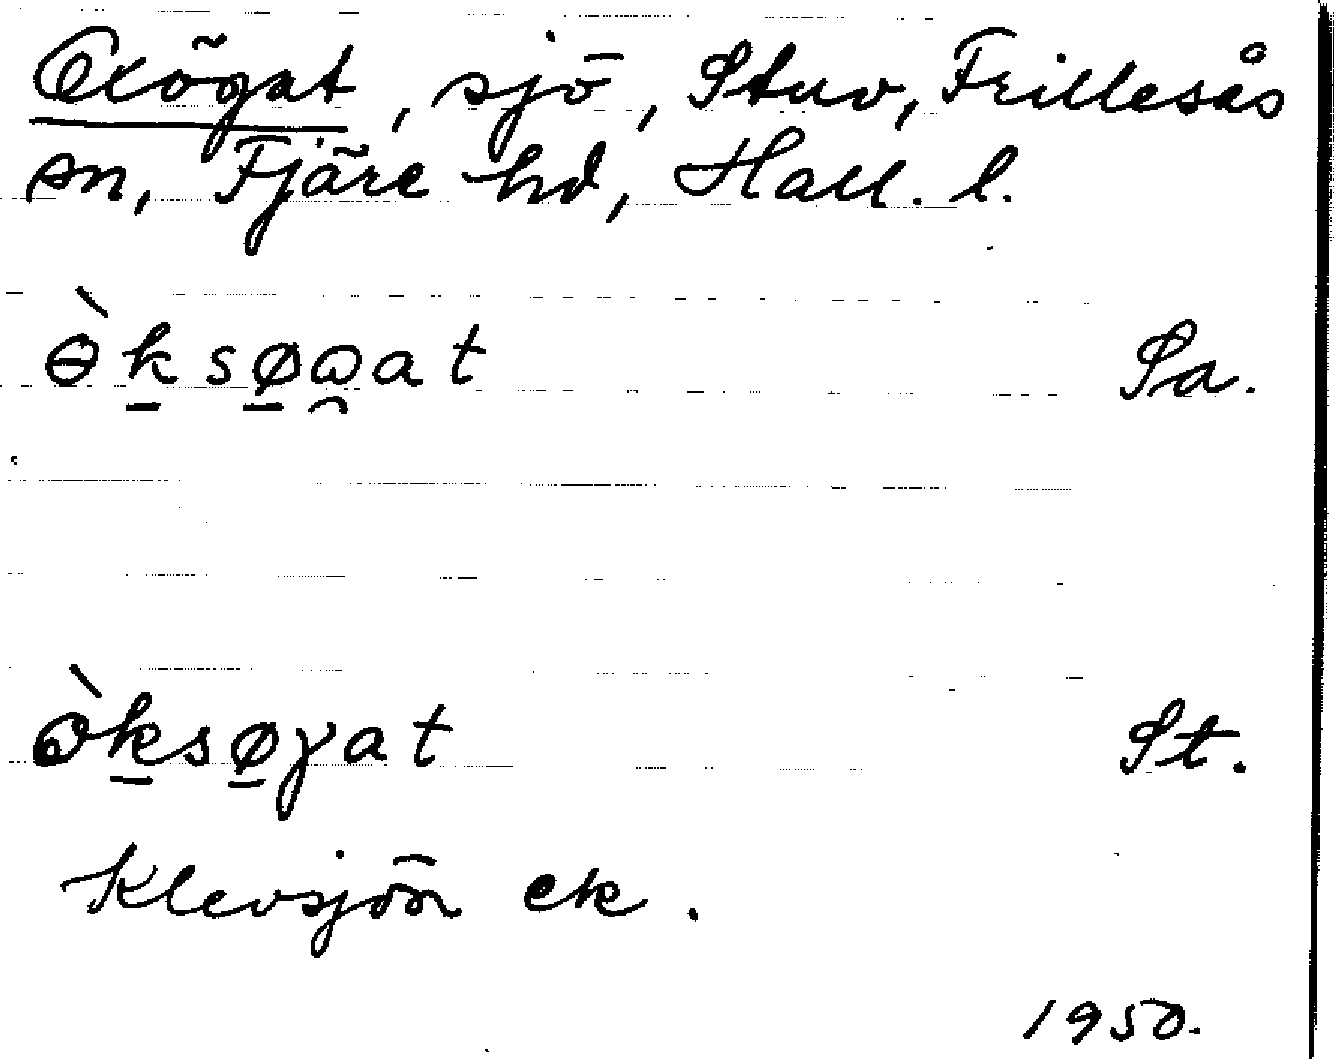 Oxögat, sjö, Stuv, Frillesås
sn, Fjäre hd, Hall. l.
ɵ̀k̠sø̠ɷ̯at Sa.
ɷ̀k̠sø̠ɣat St.
Klevsjön ek.
1950.